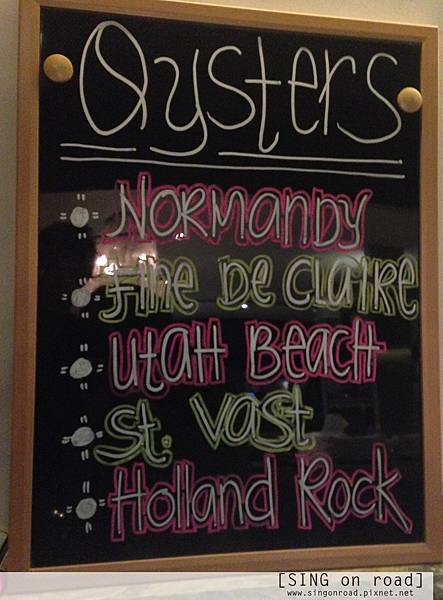 Oysters
NORMANDY
FINE DE CLAIRE
UTAH BEACH
St. VAST
Holland Rock
[SING on road]
www.singonroad.pixnet.net